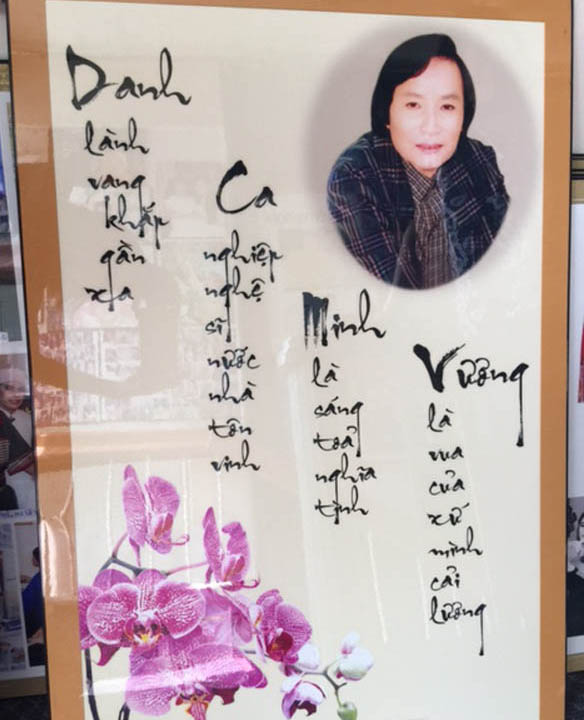 Danh
lành
vang
khắp
gần
xa
Ca
nghiệp
nghệ
sĩ
nước
nhà
tôn
vinh
Minh
là
sáng
toả
nghĩa
tình
Vương
là
vua
của
xứ
mình
cải
lương